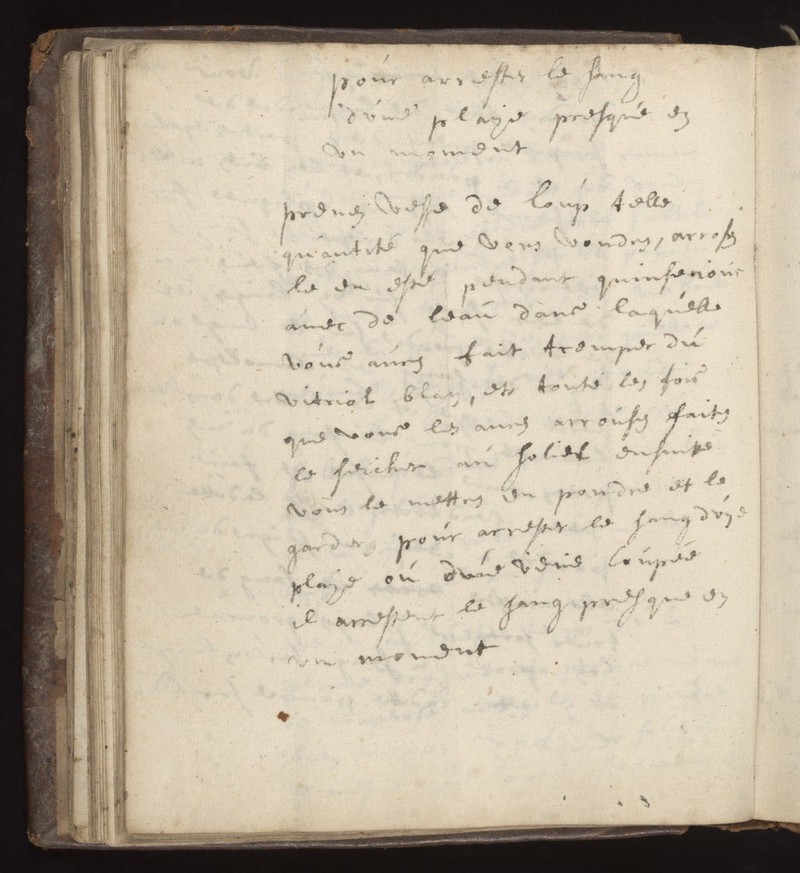 pour arrester le sang
dune playe presque en
un moment
prenez vesse de loup telle
quantité que vous voudrez, arrosez
le en esté pendant quinse iour
avec de leau dans laquelle
vous aurez fait tremper du
vitriol blanc, et toute les fois
que vous les aurez arrousez faites
le seicher au soliel ensuitte
vous le mettez en poudre et le
gardez pour arrester le sang d'une
playe ou dune veine coupée
il arrestent le sang presque en
un moment